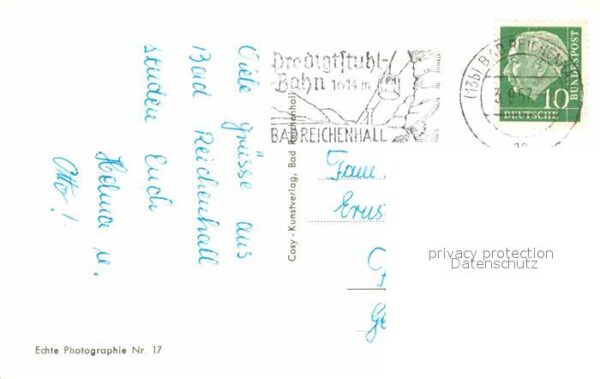 Viele Grüsse aus
Bad Reichenhall
senden Euch
Helma u.
Otto!
Echte Photographie Nr. 17
Cosy - Kunstverlag, Bad Reichenhall
Predigtstuhl-
Bahn 1614 m
BAD REICHENHALL
(13b) BAD REICHEN
3.9.57
10
DEUTSCHE
BUNDESPOST
Fam.
Erns
privacy protection
Datenschutz